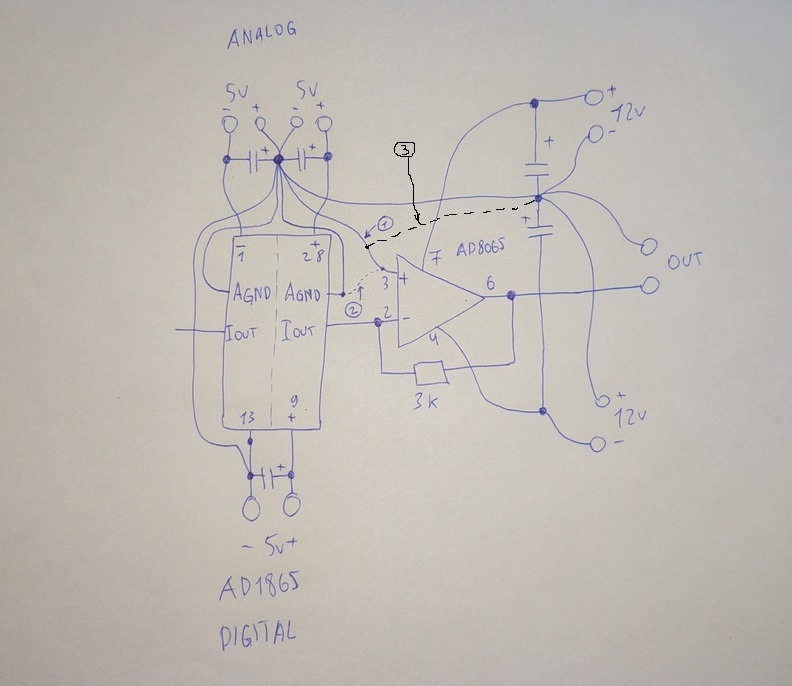 ANALOG
5V 5V
- + - +
+ 12V
-
3
+ +
+
+
1
- + 7 AD8065
1 28
3 +
AGND AGND 6 OUT
2
IOUT IOUT 2 -
4
3K
13 9
+
+ 12V
-
+
- 5V +
AD1865
DIGITAL